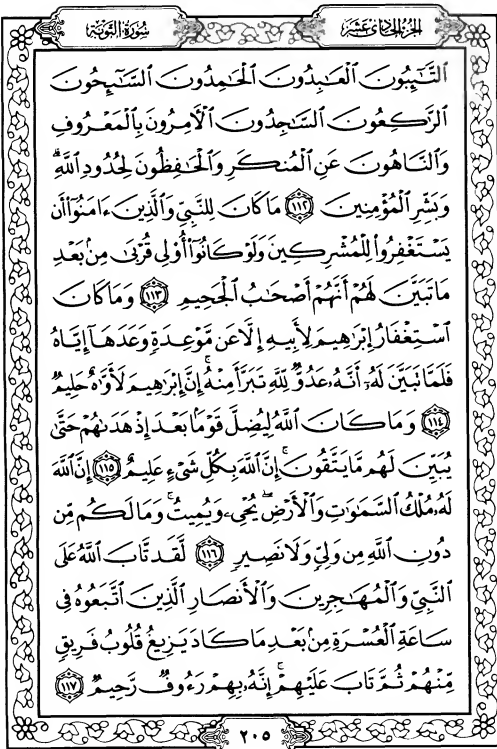 الجزء الحادي عشر
سورة التوبة
ٱلتَّـٰٓئِبُونَ ٱلْعَـٰبِدُونَ ٱلْحَـٰمِدُونَ ٱلسَّـٰٓئِحُونَ
ٱلرَّٰكِعُونَ ٱلسَّـٰجِدُونَ ٱلْـَٔامِرُونَ بِٱلْمَعْرُوفِ
وَٱلنَّاهُونَ عَنِ ٱلْمُنكَرِ وَٱلْحَـٰفِظُونَ لِحُدُودِ ٱللَّهِ ۗ
وَبَشِّرِ ٱلْمُؤْمِنِينَ ١١٢ مَا كَانَ لِلنَّبِىِّ وَٱلَّذِينَ ءَامَنُوٓا۟ أَن
يَسْتَغْفِرُوا۟ لِلْمُشْرِكِينَ وَلَوْ كَانُوٓا۟ أُو۟لِى قُرْبَىٰ مِنۢ بَعْدِ
مَا تَبَيَّنَ لَهُمْ أَنَّهُمْ أَصْحَـٰبُ ٱلْجَحِيمِ ١١٣ وَمَا كَانَ
ٱسْتِغْفَارُ إِبْرَٰهِيمَ لِأَبِيهِ إِلَّا عَن مَّوْعِدَةٍ وَعَدَهَآ إِيَّاهُ
فَلَمَّا تَبَيَّنَ لَهُۥٓ أَنَّهُۥ عَدُوٌّ لِّلَّهِ تَبَرَّأَ مِنْهُ ۚ إِنَّ إِبْرَٰهِيمَ لَأَوَّٰهٌ حَلِيمٌ
١١٤ وَمَا كَانَ ٱللَّهُ لِيُضِلَّ قَوْمًۢا بَعْدَ إِذْ هَدَىٰهُمْ حَتَّىٰ
يُبَيِّنَ لَهُم مَّا يَتَّقُونَ ۚ إِنَّ ٱللَّهَ بِكُلِّ شَىْءٍ عَلِيمٌ ١١٥ إِنَّ ٱللَّهَ
لَهُۥ مُلْكُ ٱلسَّمَـٰوَٰتِ وَٱلْأَرْضِ ۖ يُحْىِۦ وَيُمِيتُ ۚ وَمَا لَكُم مِّن
دُونِ ٱللَّهِ مِن وَلِىٍّ وَلَا نَصِيرٍ ١١٦ لَّقَد تَّابَ ٱللَّهُ عَلَى
ٱلنَّبِىِّ وَٱلْمُهَـٰجِرِينَ وَٱلْأَنصَارِ ٱلَّذِينَ ٱتَّبَعُوهُ فِى
سَاعَةِ ٱلْعُسْرَةِ مِنۢ بَعْدِ مَا كَادَ يَزِيغُ قُلُوبُ فَرِيقٍ
مِّنْهُمْ ثُمَّ تَابَ عَلَيْهِمْ ۚ إِنَّهُۥ بِهِمْ رَءُوفٌ رَّحِيمٌ ١١٧
٢٠٥